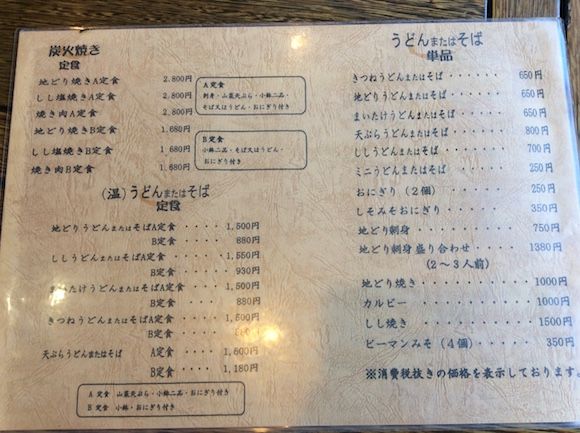 炭火焼き
定食
地どり焼きA定食 2.800円
しし塩焼きA定食 2.800円
焼き肉A定食 2.800円
地どり焼きB定食 1.680円
しし塩焼きB定食 1.680円
焼き肉B定食 1.680円
A定食
刺身・山菜天ぷら・小鉢二品・
そば又はうどん・おにぎり付き
B定食
小鉢二品・そば又はうどん・
おにぎり付き
(温)うどんまたはそば
定食
地どりうどんまたはそばA定食 ···· 1,500円
B定食 ···· 880円
ししうどんまたはそばA定食 ···· 1,550円
B定食 ···· 930円
まいたけうどんまたはそばA定食 ···· 1,500円
B定食 ···· 880円
きつねうどんまたはそばA定食 ····
B定食 ···· 円
天ぷらうどんまたはそば A定食 ···· 1,600円
B定食 ···· 1,180円
A 定食 山菜天ぷら・小鉢二品・おにぎり付き
B 定食 小鉢・おにぎり付き
うどんまたはそば
単品
きつねうどんまたはそば ······ 650円
地どりうどんまたはそば ······ 650円
まいたけうどんまたはそば ····· 650円
天ぷらうどんまたはそば ······ 800円
ししうどんまたはそば ······· 700円
ミニうどんまたはそば ······· 250円
おにぎり(2個) ········ 250円
しそみそおにぎり ········ 350円
地どり刺身 ·········· 750円
地どり刺身盛り合わせ ······ 1380円
(2~3人前)
地どり焼き ·········· 1000円
カルビー ··········· 1000円
しし焼き ··········· 1500円
ピーマンみそ(4個) ······ 350円
※消費税抜きの価格を表示しております。